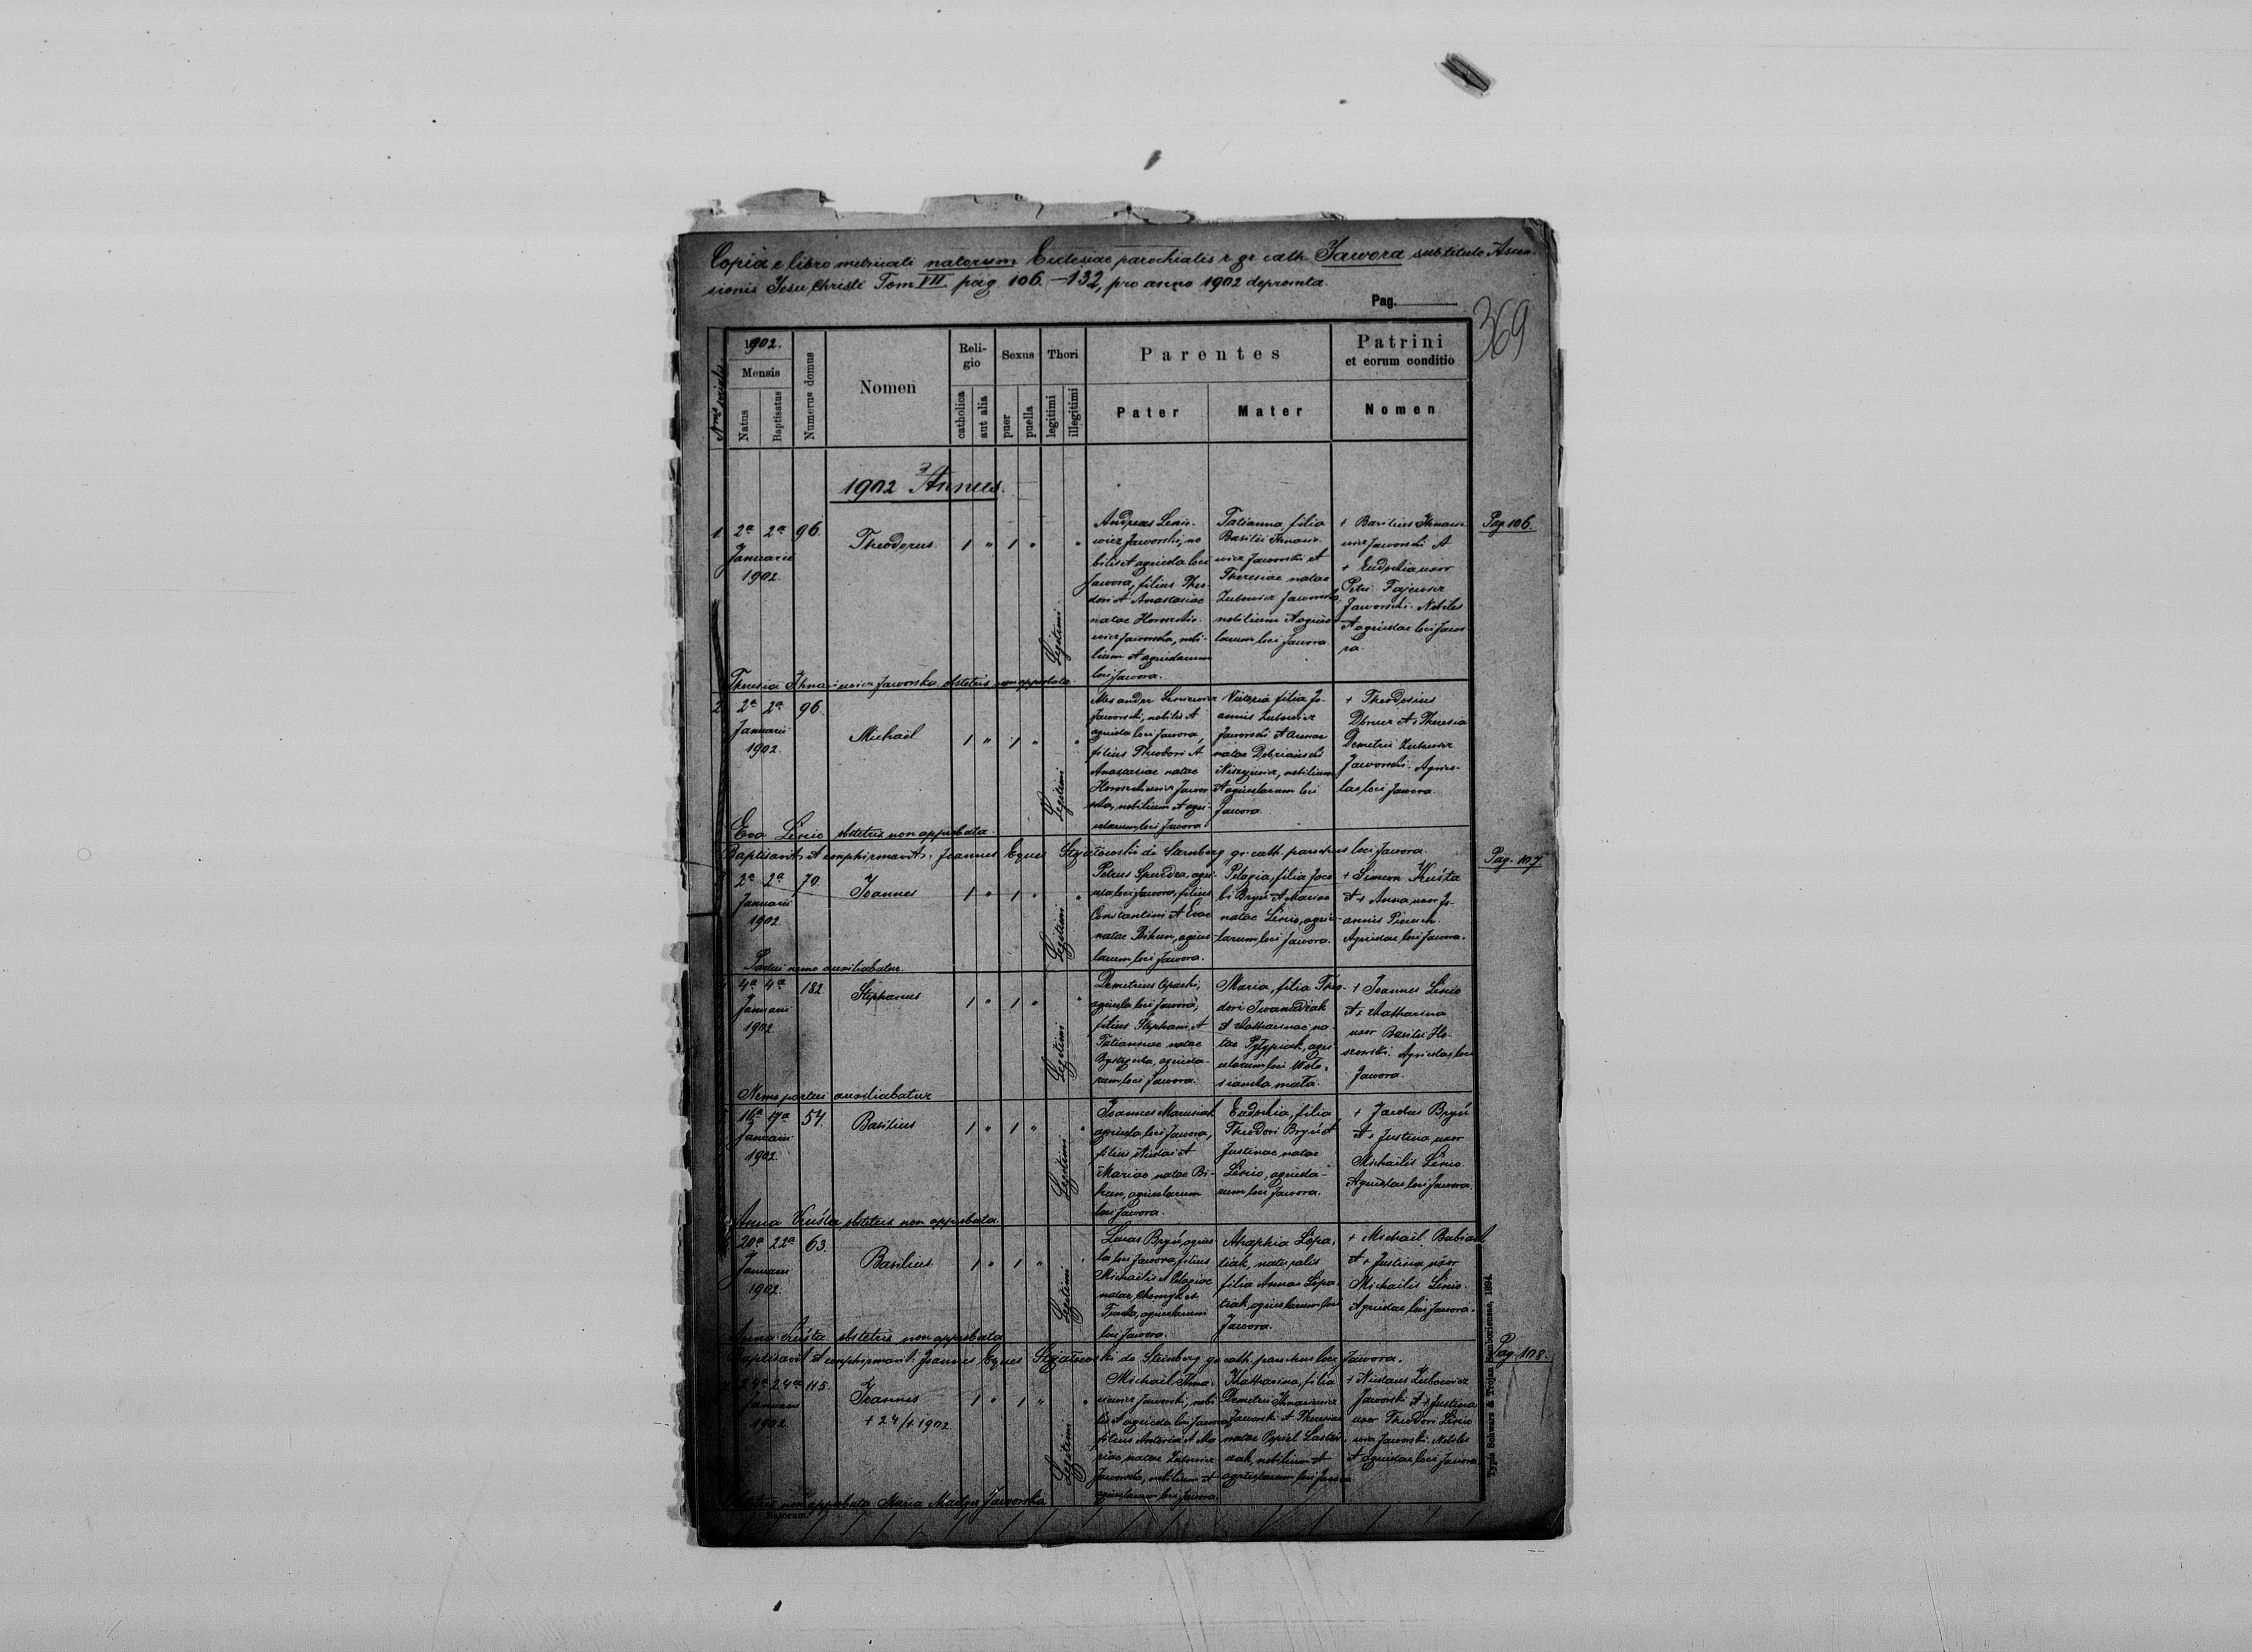 Copia e libro metricali natorum Ecclesiae parochialis r. gr. cath. Jawora sub titulo Ascen-
sionis Jesu Christi Tom VII. pag 106.–132, pro anno 1902 depromta.
Pag.
369
1902.
Mensis
Natus
Baptisatus
Numerus domus
Nomen
Religio
catholica
aut alia
Sexus
puer
puella
Thori
legitimi
illegitimi
Parentes
Pater
Mater
Patrini
et eorum conditio
Nomen
1902 Annus.
Pag. 106.
1 2a 2a 96.
Januarii
1902.
Theodorus.
1 " 1 " "
Legitimi
Andreas Lenio-
wicz Jaworski, no
bilis et agricola loci
Jawora, filius Theo-
dori et Anastasiae
natae
Jaworska, nobi-
lium et agricolarum
loci Jawora.
Tatianna, filia
Basilii
wicz Jaworski et
Theresiae natae
Zubowicz Jaworska,
nobilium et agrico-
larum loci Jawora
+ Basilius
wicz Jaworski et
+ Eudochia uxor
Petri Fajewicz
Jaworski. Nobiles
et agricolae loci Jawo-
ra.
Theresia Jaworska, obstetrix non approbata.
2 2a 2a 96.
Januarii
1902.
Michaël
1 " 1 " "
Legitimi
Alexander Leniowicz
Jaworski, nobilis et
agricola loci Jawora,
filius Theodori et
Anastasiae natae
Jawor-
ska, nobilium et agri-
colarum loci Jawora
Victoria filia Jo-
annis Zubowicz
Jaworski et Annae
natae Dobriański
nobilium
et agricolarum loci
Jawora.
+ Theodosius
et + Theresia
Demetrii Zubowicz
Jaworski. Agrico-
lae loci Jawora.
Eva Lenio obstetrix non approbata.
Baptisavit et confirmavit: Joannes Eques de Sternberg gr. cath. parochus loci Jawora.
Pag. 107
2a 2a 70
Januarii
1902
Joannes
1 " 1 " "
Legitimi
Petrus agri-
cola loci Jawora, filius
Constantini et Evae
natae Bihun, agrico-
larum loci Jawora.
Pelagia, filia Jaco
bi Bryń et Mariae
natae Lenio, agrico-
larum loci Jawora.
+ Simeon Kuśta
et + Anna, uxor Jo-
annis
Agricolae loci Jawora.
Partui nemo auxiliabatur.
4a 4a 182.
Januarii
1902
Stephanus
1 " 1 " "
Legitimi
Demetrius
agricola loci Jawora,
filius Stephani et
Tatiannae natae
agricola-
rum loci Jawora.
Maria, filia Theo-
dori
et Catharinae, na-
tae agri-
colarum loci Woło-
sianka mała.
+ Joannes Lenio
et + Catharina
uxor Basilii Ho-
szowski. Agricolae loci
Jawora.
Nemo partui auxiliabatur
16a 17a 54.
Januarii
1902.
Basilius
1 " 1 " "
Legitimi
Joannes Marusiak
agricola loci Jawora,
filius Nicolai et
Mariae natae Bi-
hun, agricolarum
loci Jawora.
Eudochia, filia
Theodori Bryń et
Justinae natae
Lenio, agricola-
rum loci Jawora.
+ Jacobus Bryń
et + Justina uxor
Michaelis Lenio.
Agricolae loci Jawora.
Anna Kuśta, obstetrix non approbata.
20a 22a 63.
Januarii
1902.
Basilius
1 " 1 "
Legitimi
Lucas Bryń, agrico-
la loci Jawora, filius
Michaelis et Pelagiae
natae
agricolarum
loci Jawora.
Ahaphia Łopa-
tiak, naturalis
filia Annae Łopa-
tiak, agricolarum loci
Jawora.
+ Michaël Babiak
et + Justina uxor
Michaelis Lenio.
Agricolae loci Jawora.
Anna Kuśta obstetrix non approbata
Baptisavit et confirmavit: Joannes Eques de Sternberg gr. cath. parochus loci Jawora.
Pag. 108.
24a 24a 115.
Januarii
1902
Joannes
1 " 1 " "
Legitimi
Michaël
Jaworski, nobi-
lis et agricola loci Jawora,
filius Antonii et Ma-
riae, natae Zubowicz
Jaworska, nobilium et
agricolarum loci Jawora.
Katharina, filia
Demetrii
Jaworski et Theresiae
natae Popiel
nobilium et
agricolarum loci Jawora
+ Nicolaus Zubowicz
Jaworski et + Justina
uxor Theodori Lenio
wicz Jaworski. Nobiles
et agricolae loci Jawora
Obstetrix non approbata Maria Jaworska
Natorum.
Typis Schwarz & Trojan Samboriensis, 1894.